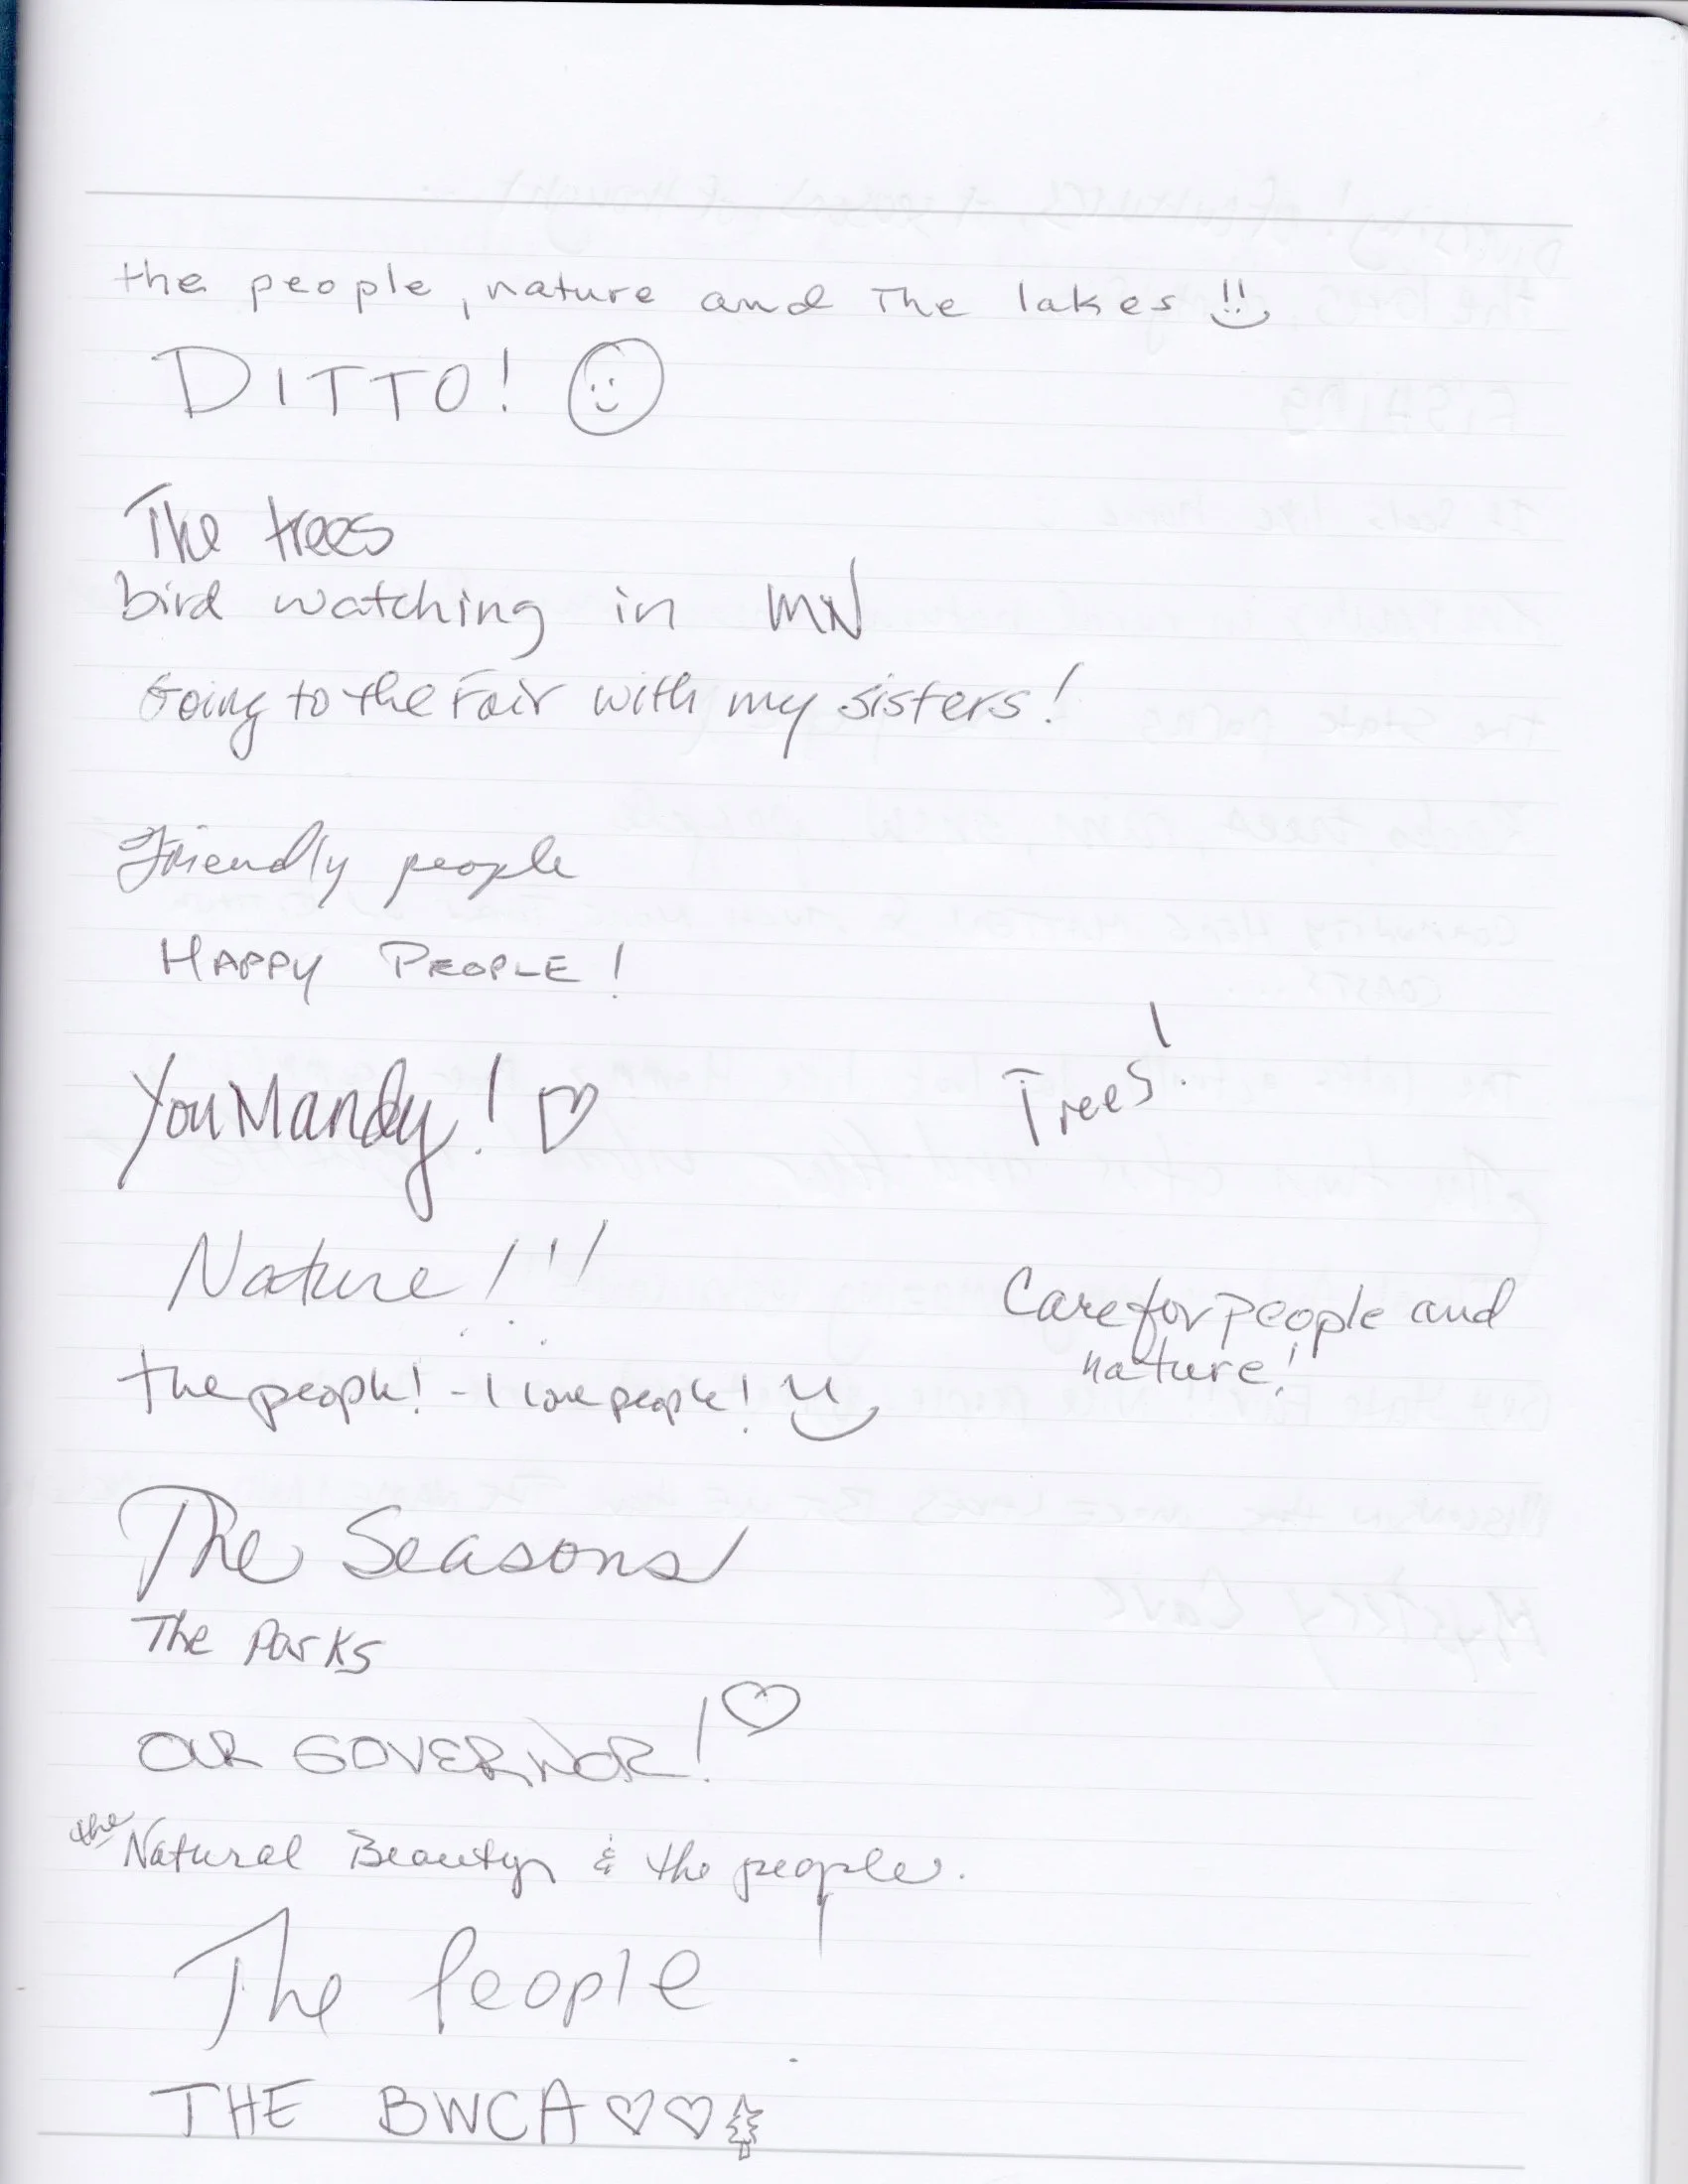 the people, nature and The lakes
DITTO!
The trees
bird watching in MN
Going to the Fair with my sisters!
Friendly people
HAPPY PEOPLE!
You Mandy!
Trees!
Nature!!!
Care for people and
nature!
the people! - I love people!
The Seasons
The Parks
OUR GOVERNOR!
the Natural Beauty & the people.
The People
THE BWCA